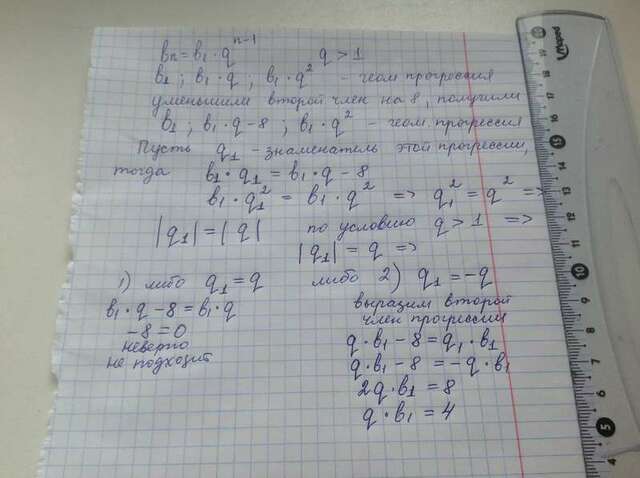 bn = b₁·q^(n-1)    q > 1
b₁ ; b₁·q ; b₁·q² - геом прогрессия
уменьшим второй член на 8, получим
b₁ ; b₁·q-8 ; b₁·q² - геом. прогрессия
Пусть q₁ - знаменатель этой прогрессии,
тогда b₁·q₁ = b₁·q - 8
b₁·q₁² = b₁·q² => q₁² = q² =>
|q₁| = |q| по условию q > 1 =>
|q₁| = q =>
1) либо q₁ = q    либо 2) q₁ = -q
b₁·q - 8 = b₁·q
-8 = 0
неверно
не подходит
выразим второй
член прогрессии
q·b₁ - 8 = q₁·b₁
q·b₁ - 8 = -q·b₁
2q·b₁ = 8
q·b₁ = 4